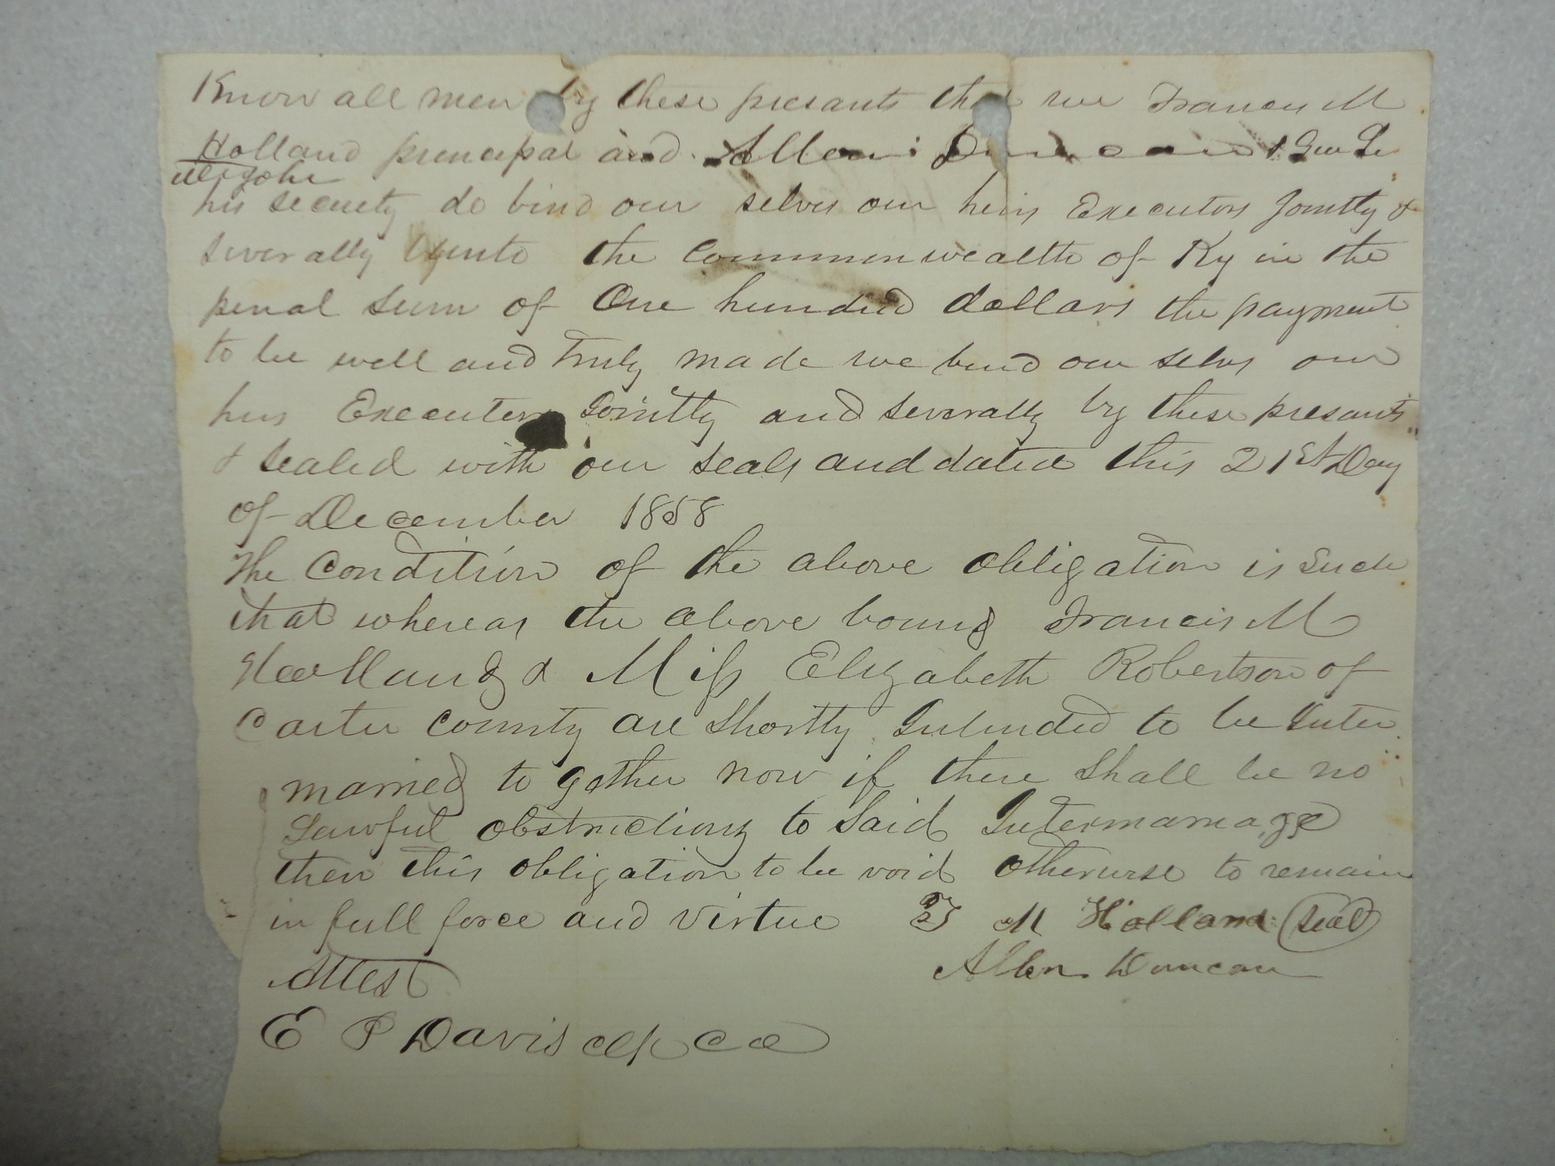 Know all men by these presants that we Francis M
Holland principal and Allen Duncan & Geo
his security do bind our selves our heirs Executors Jointly &
severally unto the Commonwealth of Ky in the
penal sum of One hundred dollars the payment
to be well and truly made we bind our selvs our
hirs Executers Jointly and severally by these presants
& Sealed with our seals and dated this 21st Day
of December 1858
The Condition of the above obligation is Such
that whereas the above bound Francis M
Holland & Miss Elizabeth Robertson of
Carter County are Shortly Intended to be Inter
married to gether now if there Shall be no
Lawful obstructions to Said Intermarriage
then this obligation to be void otherwise to remain
in full force and virtue F M Holland (seal)
Allen Duncan
Attest
E P Davis